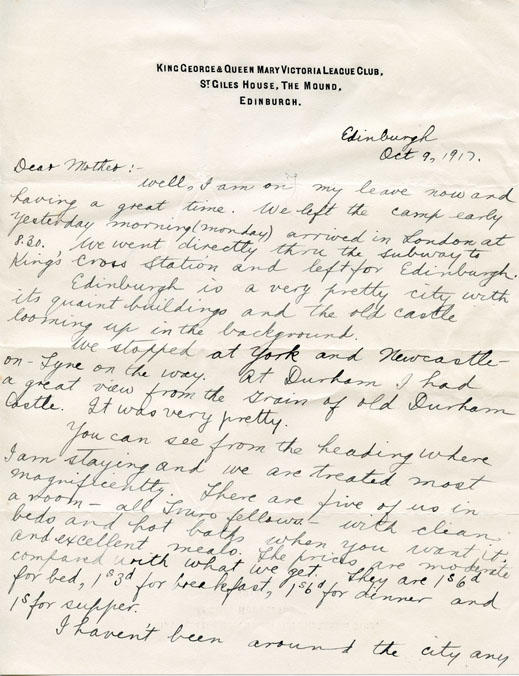 KING GEORGE & QUEEN MARY VICTORIA LEAGUE CLUB,
ST GILES HOUSE, THE MOUND,
EDINBURGH.
Edinburgh
Oct 9, 1917.
Dear Mother:-
Well, I am on my leave now and
having a great time. We left the camp early
yesterday morning (monday) arrived in London at
8.30. We went directly thru the subway to
King's Cross Station and left for Edinburgh.
Edinburgh is a very pretty city with
its quaint buildings and the old castle
looming up in the background.
We stopped at York and Newcastle-
on-Tyne on the way. At Durham I had
a great view from the train of old Durham
Castle. It was very pretty.
You can see from the heading where
I am staying and we are treated most
magnificently. There are five of us in
a room - all Truro fellows - with clean
beds and hot baths when you want it,
and excellent meals. The prices are moderate
compared with what we get. They are 1s6d
for bed, 1s3d for breakfast, 1s6d for dinner and
1s for supper.
I haven't been around the city any